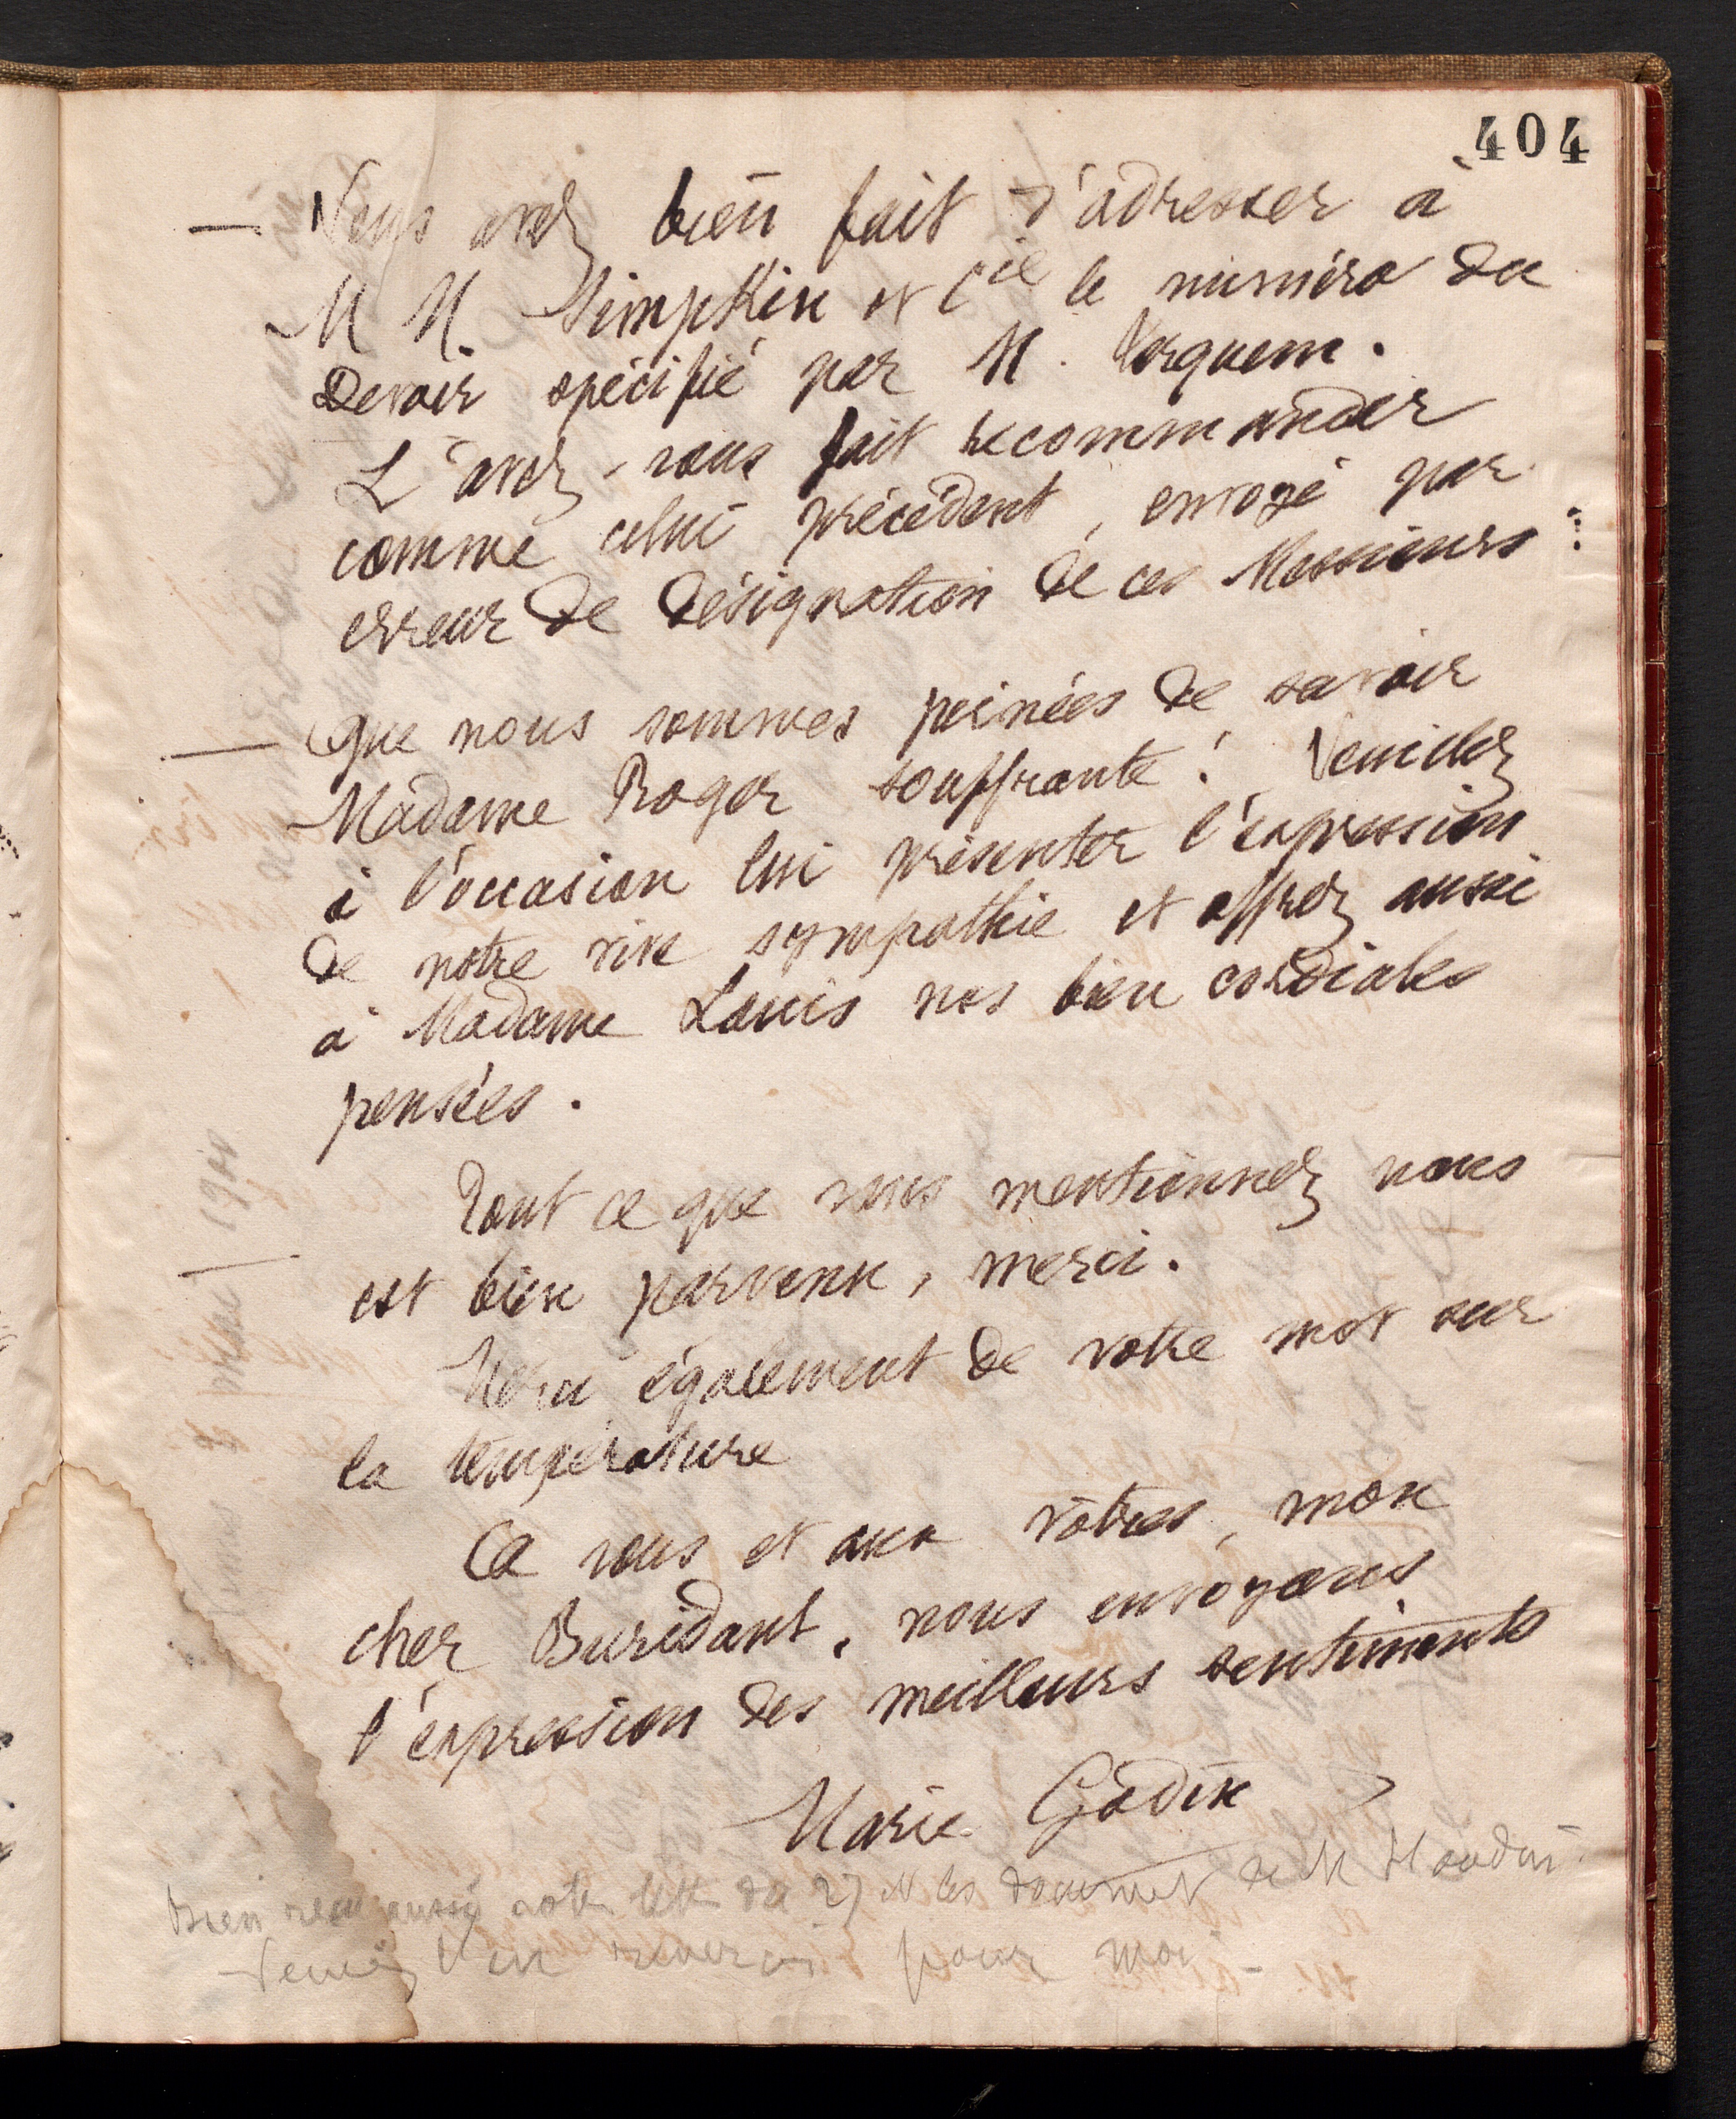 404
— Vous avez bien fait d'adresser à
MM. Simpkin et Cie le numéro du
Devoir spécifié par M. Kerquem.
L'avez-vous fait recommander
comme celui précédent, envoyé par
erreur de désignation de ces Messieurs ?
— Que nous sommes peinées de savoir
Madame Roger souffrante ! Veuillez
à l'occasion lui présenter l'expression
de notre vive sympathie et offrez aussi
à Madame Louis nos bien cordiales
pensées.
Tout ce que vous mentionnez nous
— est bien parvenu, merci.
Merci également de votre mot sur
la température
A vous et aux vôtres, mon
cher Buridant, nous envoyons
l'expression des meilleurs sentiments
Marie Godin
Bien reçu aussi votre lettre du 27 et les document de M Houdin.
Veuillez l'en remercier pour moi -